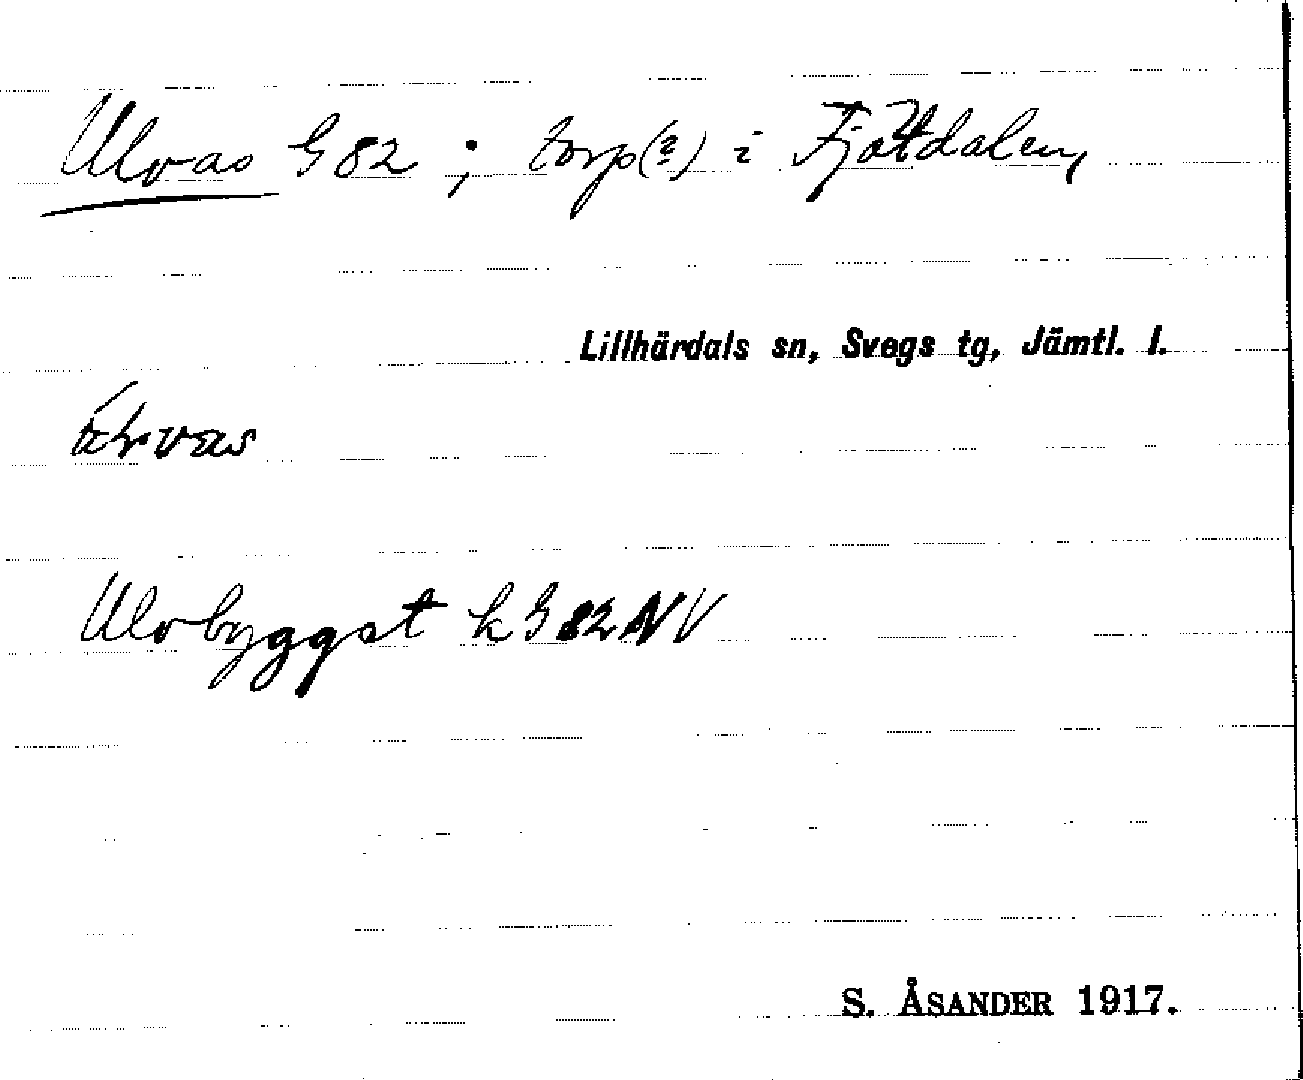 Ulvas G 82 ; torp(?) i Fjätdalen,
Lillhärdals sn, Svegs tg, Jämtl. l.
Ulvbyggst k G 82 NV
S. ÅSANDER 1917.